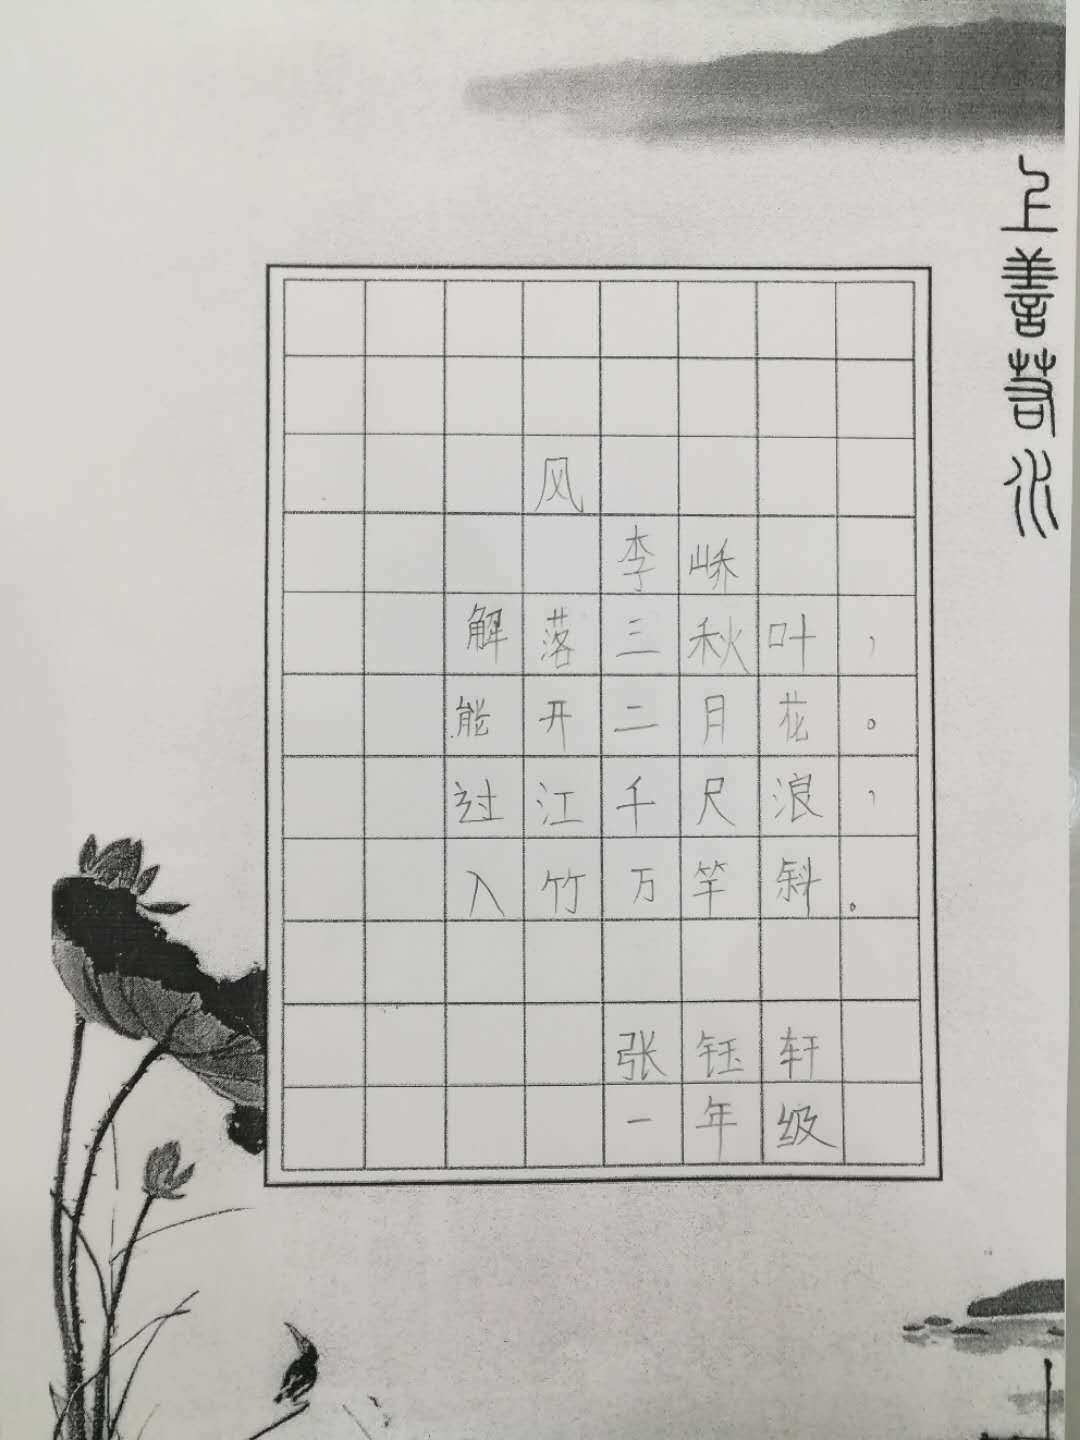 上善若水
风
李峤
解落三秋叶，
能开二月花。
过江千尺浪，
入竹万竿斜。
张钰轩
一年级